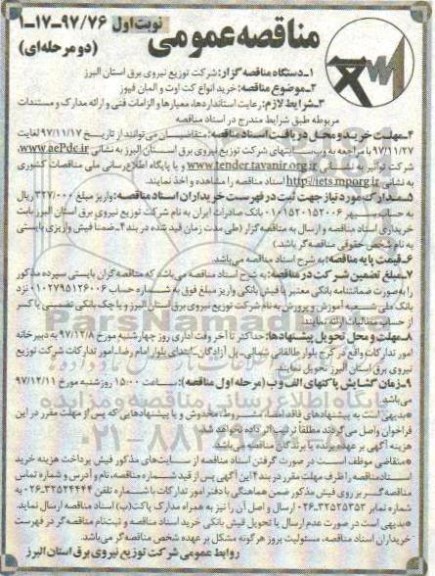 مناقصه عمومی
نوبت اول ۹۷/۷۶-۱۷-۱
(دو مرحله‌ای)
۱-دستگاه مناقصه گزار: شرکت توزیع نیروی برق استان البرز
۲-موضوع مناقصه: خرید انواع کت اوت و المان فیوز
۳-شرایط لازم: رعایت استانداردها، معیارها و الزامات فنی و ارائه مدارک و مستندات
مربوطه طبق شرایط مندرج در اسناد مناقصه
۴-مهلت خرید و محل دریافت اسناد مناقصه: متقاضیان می‌توانند از تاریخ ۹۷/۱۱/۱۷ لغایت
۹۷/۱۱/۲۷ با مراجعه به وب سایتهای شرکت توزیع نیروی برق استان البرز به نشانی www.aePdc.ir،
شرکت توانیر به نشانی www.tender.tavanir.org.ir و یا پایگاه اطلاع رسانی ملی مناقصات کشوری
به نشانی http://iets.mporg.ir اسناد مناقصه را مشاهده و اخذ نمایند.
۵-مدارک مورد نیاز جهت ثبت در فهرست خریداران اسناد مناقصه: واریز مبلغ ۳۲۷/۰۰۰ ریال
به حساب سپهر ۰۱۰۱۵۲۰۱۵۲۰۰۶ بانک صادرات ایران به نام شرکت توزیع نیروی برق استان البرز بابت
خریداری اسناد مناقصه و ارسال به مناقصه گزار (طی مدت زمان قید شده در بند ۴-ضمنا فیش واریزی بایستی
به نام شخص حقوقی مناقصه‌گر باشد.)
۶-قیمت پایه مناقصه: به شرح اسناد مناقصه می‌باشد.
۷-مبلغ تضمین شرکت در مناقصه: به شرح اسناد مناقصه می‌باشد که مناقصه گران بایستی سپرده مذکور
را به صورت ضمانتنامه بانکی معتبر یا فیش بانکی واریز مبلغ فوق به شماره حساب ۰۱۰۲۷۹۵۱۲۶۰۰۶ نزد
بانک ملی شعبه آموزش و پرورش به نام شرکت توزیع نیروی برق استان البرز و یا چک بانکی تضمینی یا کسر
از حساب مطالبات ارائه نمایند.
۸-مهلت و محل تحویل پیشنهادها: حداکثر تا آخر وقت اداری روز چهارشنبه مورخ ۹۷/۱۲/۸ به دبیرخانه
امور تدارکات واقع در کرج بلوار طالقانی شمالی- پل آزادگان- ابتدای بلوار امام رضا، امور تدارکات شرکت توزیع
نیروی برق استان البرز تحویل نمایند.
۹-زمان گشایش پاکتهای الف و ب (مرحله اول مناقصه): ساعت ۱۵:۰۰ روز شنبه مورخ ۹۷/۱۲/۱۱
می‌باشد.
*بدیهی است به پیشنهادهای فاقد امضاء، مشروط، مخدوش و یا پیشنهادهایی که پس از مهلت مقرر در این
فراخوان واصل می‌گردند مطلقا ترتیب اثر داده نخواهد شد.
هزینه آگهی بر عهده برنده یا برندگان مناقصه می‌باشد.
*متقاضی موظف است در صورت گرفتن اسناد مناقصه از سایت‌های مذکور فیش پرداخت هزینه خرید
اسناد مناقصه را ظرف مهلت مقرر در بند ۴ این آگهی پس از قید شماره مناقصه، نام و آدرس و شماره تماس
مناقصه گر بر روی فیش مذکور ضمن هماهنگی با دفتر امور تدارکات با شماره تلفن ۳۲۵۲۴۴۴۴-۰۲۶ به
شماره نمابر ۳۲۵۲۵۳۵۳-۰۲۶ ارسال و اصل آن را نیز به همراه مدارک پاکت(ب) اسناد مناقصه ارسال نماید.
*بدیهی است در صورت عدم ارسال یا تحویل فیش بانکی خرید اسناد مناقصه و ثبت نام مناقصه‌گر در فهرست
خریداران اسناد مناقصه، مسئولیت بروز هرگونه مشکل بر عهده شخص مناقصه‌گر می‌باشد.
روابط عمومی شرکت توزیع نیروی برق استان البرز